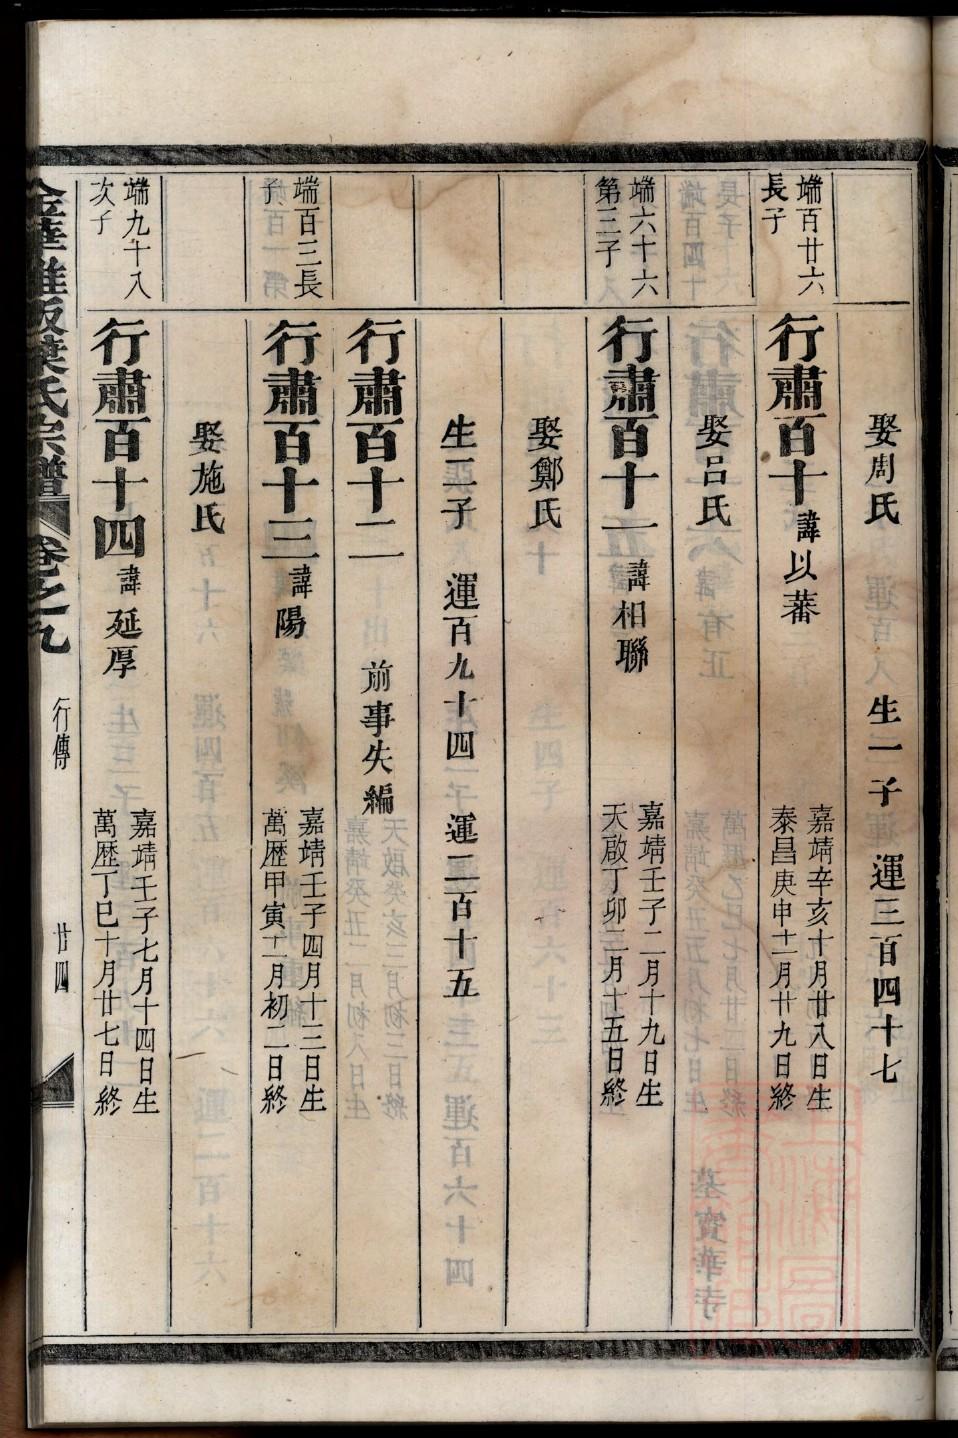 娶周氏 生一子 運三百四十七
端百廿六長子
行肅百十 諱以蕃 嘉靖辛亥十月廿八日生 泰昌庚申十一月廿九日終
娶呂氏
端六十六第三子
行肅百十一 諱相聯 嘉靖壬子二月十九日生 天啟丁卯二月十五日終
娶鄭氏
生二子 運百九十四 運二百十五
行肅百十二 前事失編
端百三長子
行肅百十三 諱陽 嘉靖壬子四月十二日生 萬歷甲寅十一月初二日終
娶施氏
端九十八次子
行肅百十四 諱延厚 嘉靖壬子七月十四日生 萬歷丁巳十月廿七日終
氏宗譜 卷之九 行傳 廿四